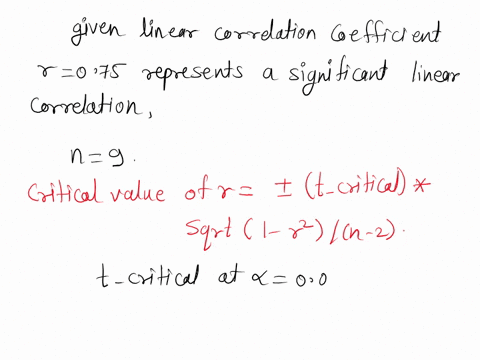 given linear correlation coefficient
r=0.75 represents a significant linear
correlation,
n=9.
Critical value of r = ± (t_critical) *
Sqrt (1-r²)/(n-2).
t_critical at α=0.0